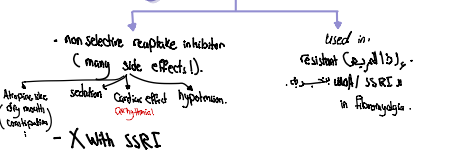 - non selective reaptake inhibitor
( many side effects!).
Atropine like
( dry mouth
constipation )
sedation
Cardiac effect
(arrhythmia)
hypotension.
- X with SSRI
used in:
resistant (إذا المريض
SSRI /
in fibromyalgia.